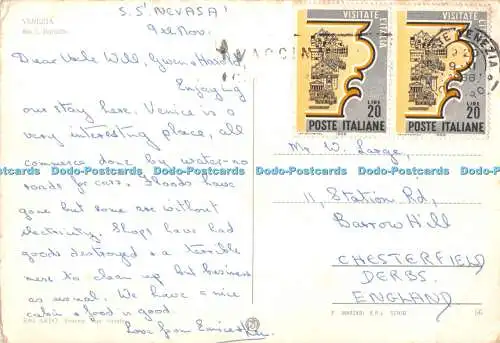 VENEZIA
S.S' NEVASA'
9th Nov.
Dear Uncle Will, Gwen & Harold
Enjoying
our stay here. Venice is a
very interesting place, all
commerce done by water-no
roads for cars. Floods have
gone but some are without
electricity. Shops have had
goods destroyed & a terrible
mess to clean up but business
as usual. We have a nice
cabin & food is good.
Love from
VACCIN
VENEZIA
VISITATE L'ITALIA
LIRE 20
POSTE ITALIANE
VISITATE L'ITALIA
LIRE 20
POSTE ITALIANE
Mr W. Large,
11, Station Rd,
Barrow Hill
CHESTERFIELD
DERBS.
ENGLAND
Dodo-Postcards Dodo-Postcards Dodo-Postcards Dodo-Postcards Dodo-Postcards